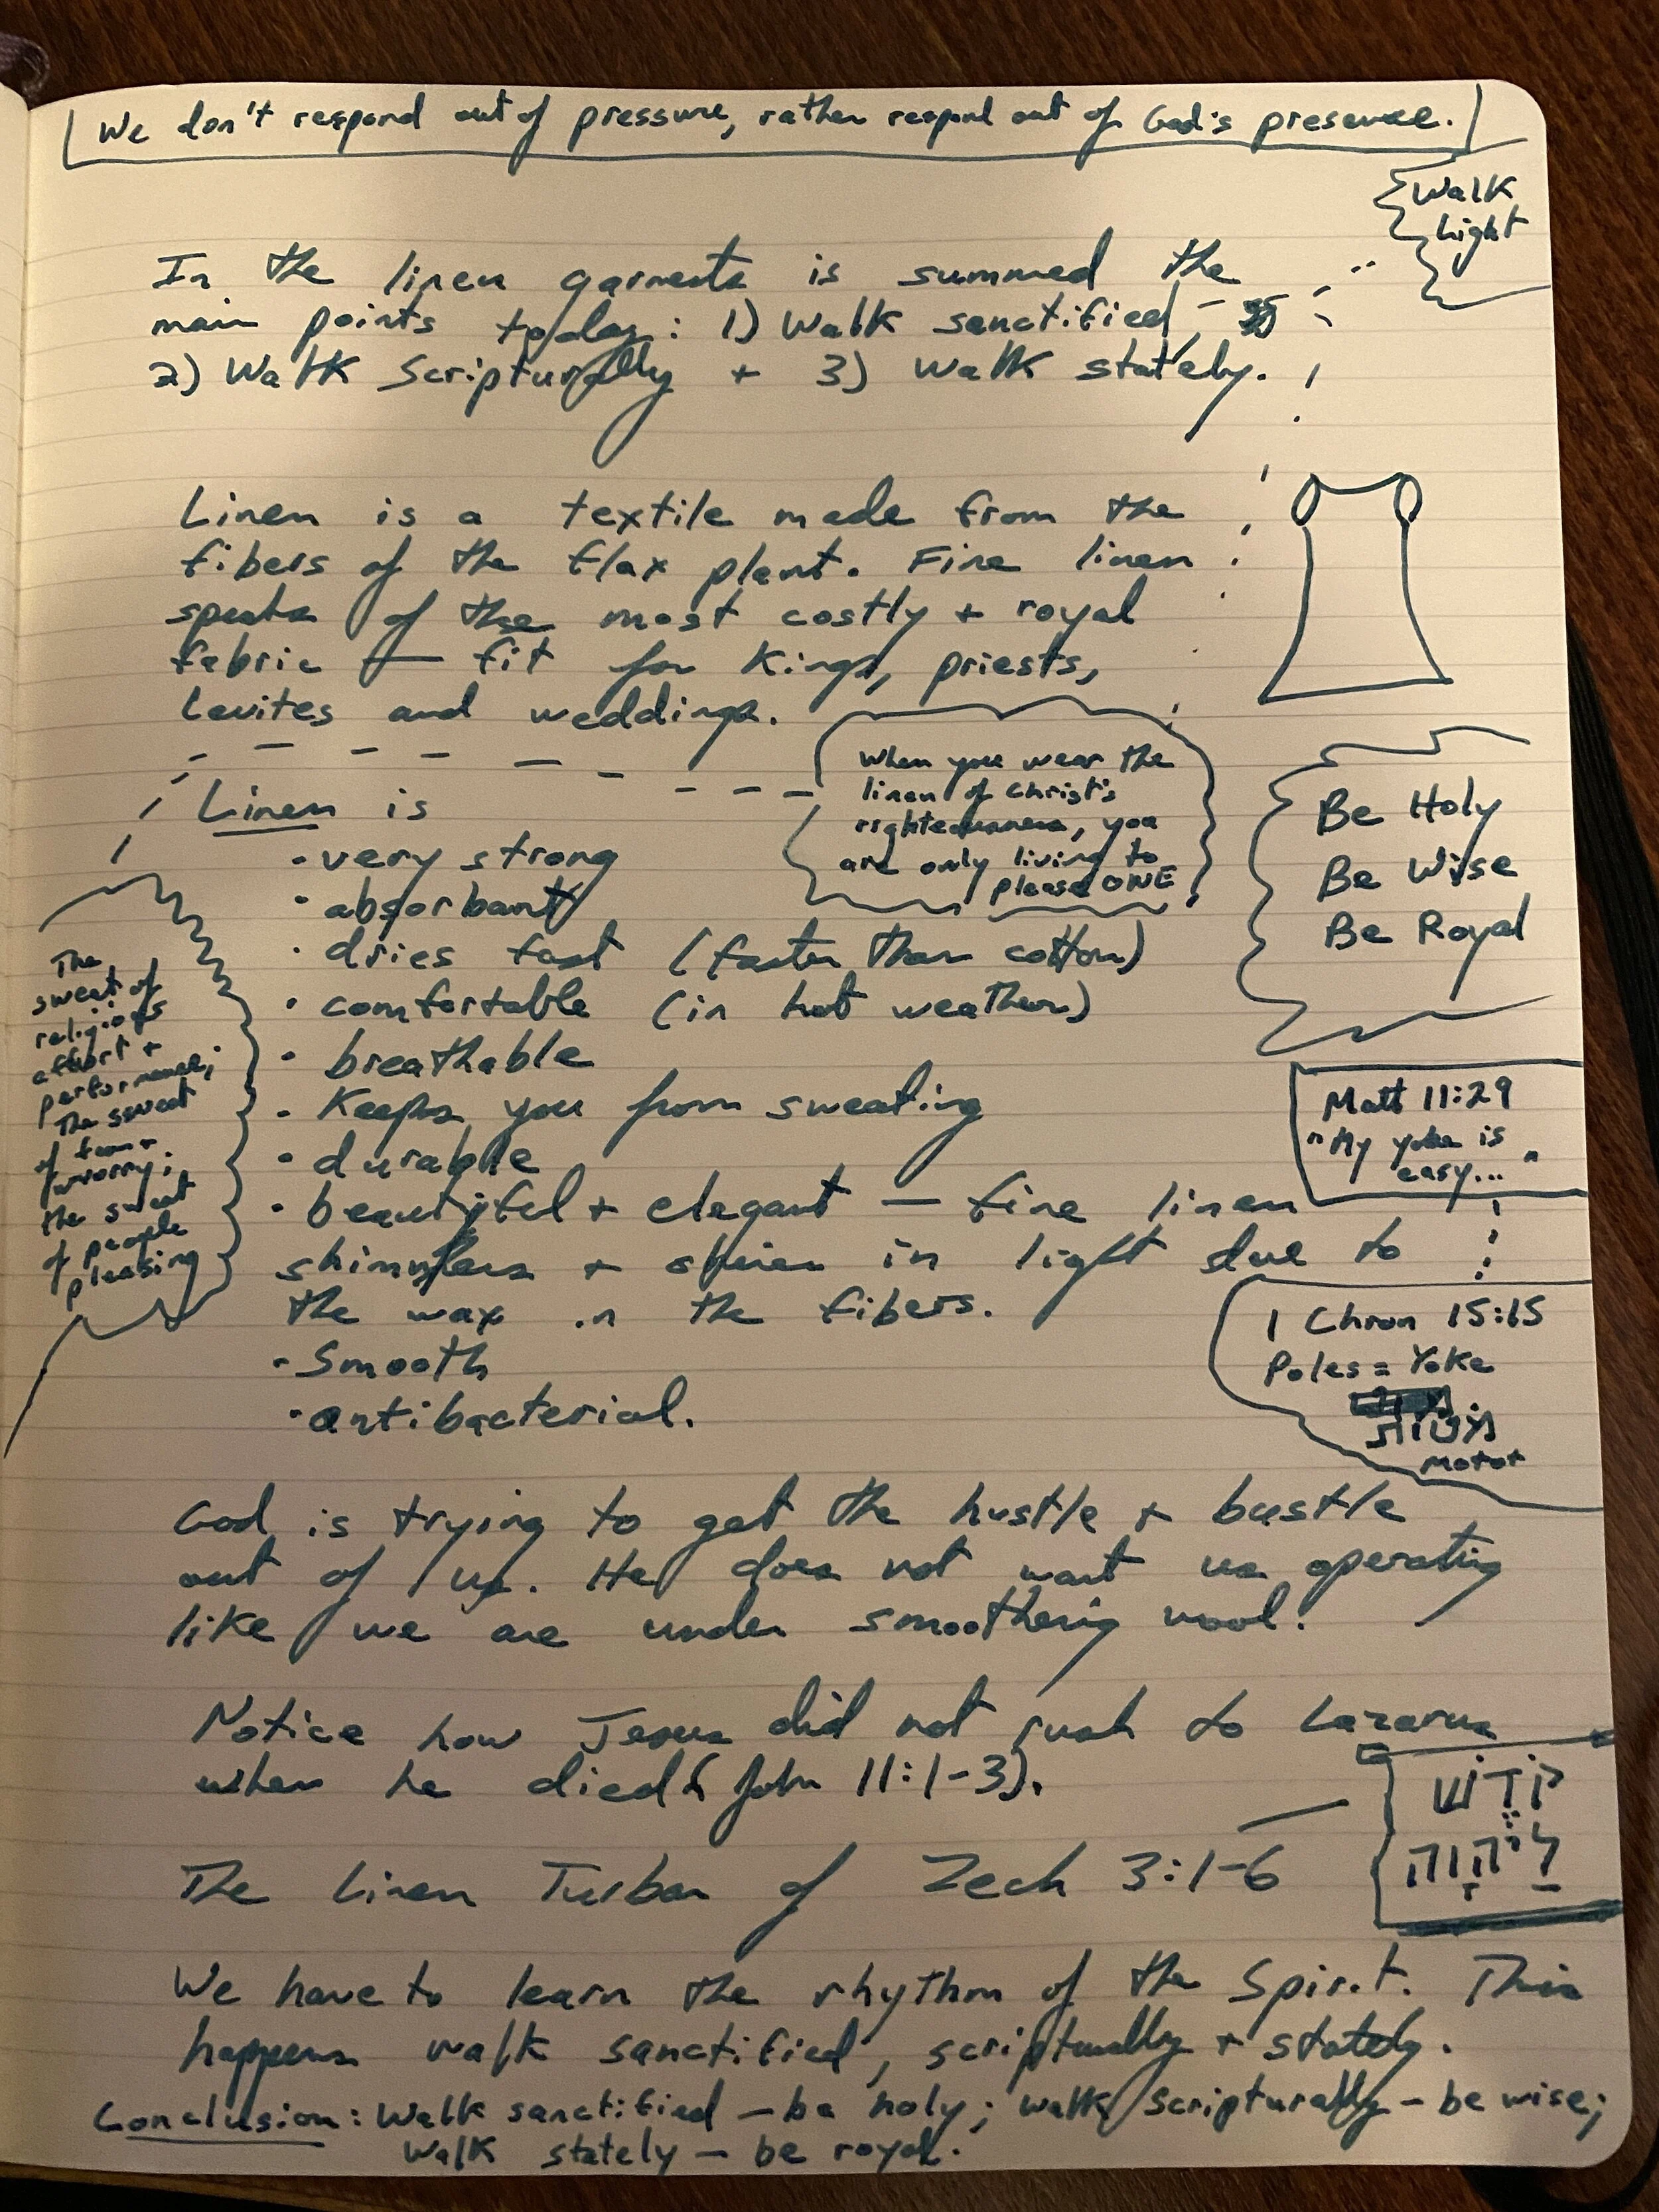 We don't respond out of pressure, rather respond out of God's presence.
Walk
Light
In the linen garments is summed the
main points today: 1) Walk sanctified
2) Walk Scripturally + 3) Walk stately.
Linen is a textile made from the
fibers of the flax plant. Fine linen
speaks of the most costly + royal
fabric — fit for Kings, priests,
Levites and weddings.
When you wear the
linen of Christ's
righteousness, you
are only living to
please ONE
Be Holy
Be Wise
Be Royal
Linen is
· very strong
· absorbant
· dries fast (faster than cotton)
· comfortable (in hot weather)
· breathable
· Keeps you from sweating
· durable
· beautiful + elegant — fine linen
shimmers + shines in light due to
the wax in the fibers.
· Smooth
· antibacterial.
The
sweat of
religious
effort +
performance;
The sweat
of fear +
worry;
the sweat
of people
pleasing
Matt 11:29
"My yoke is
easy..."
1 Chron 15:15
Poles = Yoke
motot
God is trying to get the hustle + bustle
out of us. He does not want us operating
like we are under smoothering wool.
Notice how Jesus did not rush to Lazarus
when he died (John 11:1-3).
קֹדֶשׁ
לַיהוָה
The Linen Turban of Zech 3:1-6
We have to learn the rhythm of the Spirit. This
happens walk sanctified, scripturally + stately.
Conclusion: Walk sanctified — be holy; walk scripturally — be wise;
Walk stately — be royal.